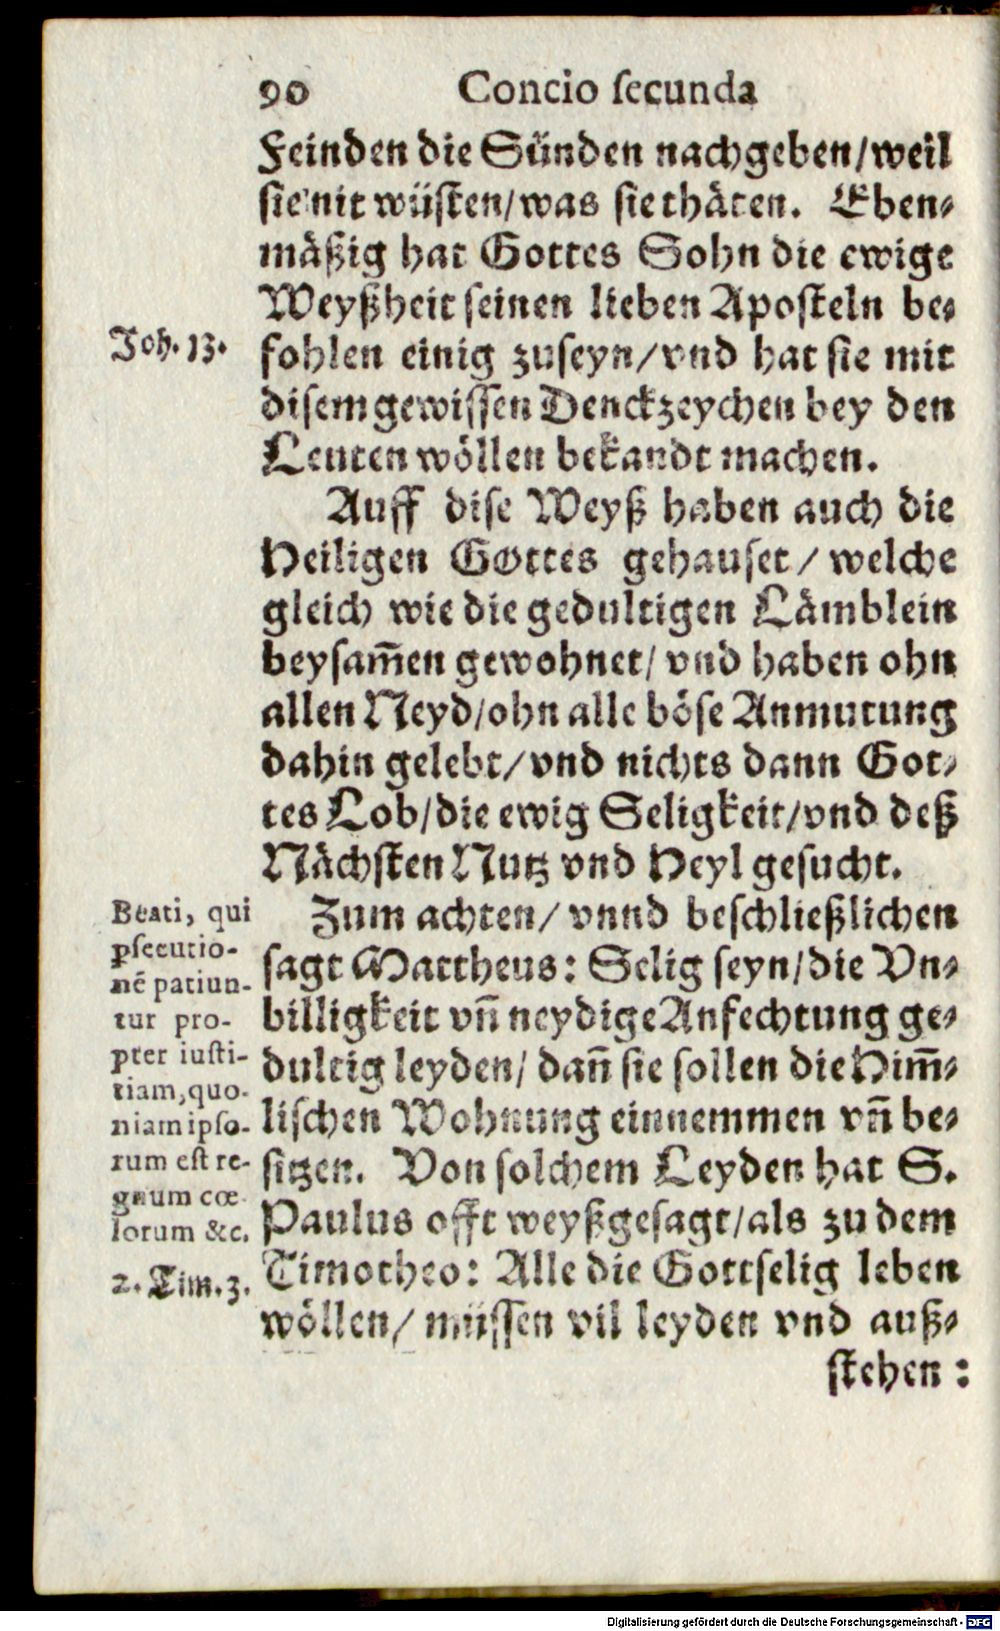 90 Concio ſecunda
Feinden die Sünden nachgeben/weil
ſie nit wüſten/was ſie thäten. Eben⸗
mäßig hat Gottes Sohn die ewige
Weyßheit ſeinen lieben Apoſteln be⸗
Joh. 13.
fohlen einig zuſeyn/vnd hat ſie mit
diſem gewiſſen Denckzeychen bey den
Leuten wöllen bekandt machen.
Auff diſe Weyß haben auch die
Heiligen Gottes gehauſet/ welche
gleich wie die gedultigen Lämblein
beyſam̃en gewohnet/ vnd haben ohn
allen Neyd/ohn alle böſe Anmutung
dahin gelebt/vnd nichts dann Got⸗
tes Lob/die ewig Seligkeit/vnd deß
Nächſten Nutz vnd Heyl geſucht.
Beati, qui
ꝑſecutio-
nē patiun-
tur pro-
pter iuſti-
tiam, quo-
niam ipſo-
rum eſt re-
gnum cœ
lorum &c.
2. Tim. 3.
Zum achten/ vnnd beſchließlichen
ſagt Mattheus: Selig ſeyn/die Vn⸗
billigkeit vñ neydige Anfechtung ge⸗
dultig leyden/ dañ ſie ſollen die Him̃⸗
liſchen Wohnung einnemmen vñ be⸗
ſitzen. Von ſolchem Leyden hat S.
Paulus offt weyßgeſagt/als zu dem
Timotheo: Alle die Gottſelig leben
wöllen/ müſſen vil leyden vnd auß⸗
ſtehen :
Digitalisierung gefördert durch die Deutsche Forschungsgemeinschaft - DFG